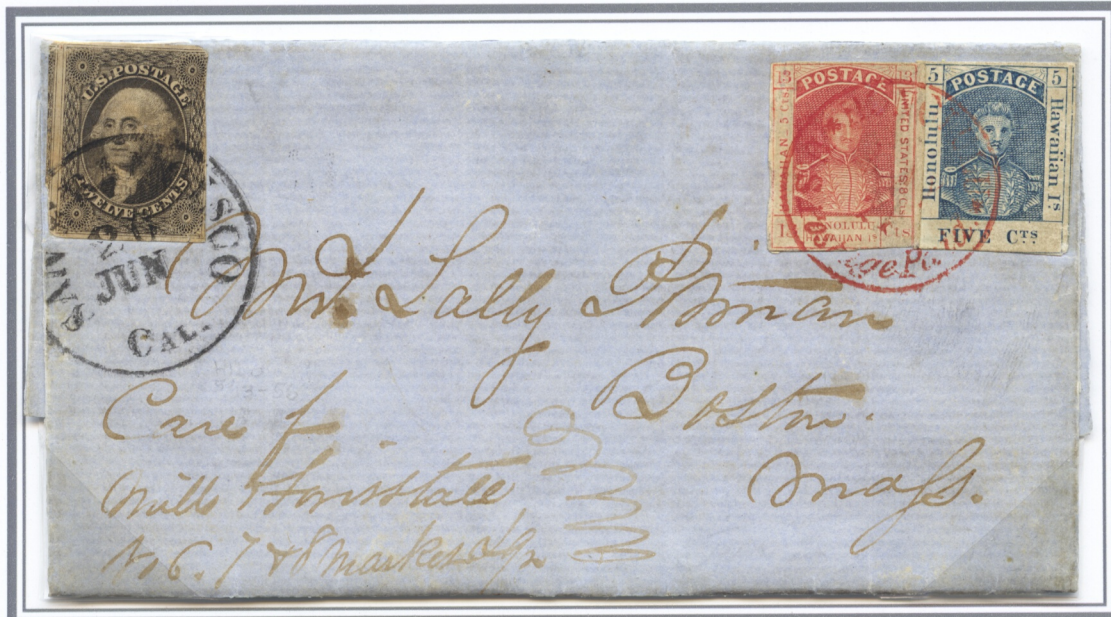 U.S. POSTAGE
TWELVE CENTS
SAN FRANCISCO
20
JUN
CAL.
13 POSTAGE 13
HAWAIIAN 5 Cts.
UNITED STATES 8 Cts
HONOLULU
HAWAIIAN Is.
5 POSTAGE 5
Honolulu
Hawaiian Is.
FIVE CTS
Lally
Boston.
Mass.
Care of
Mills
No 6. 7 & 8 Market Sqr